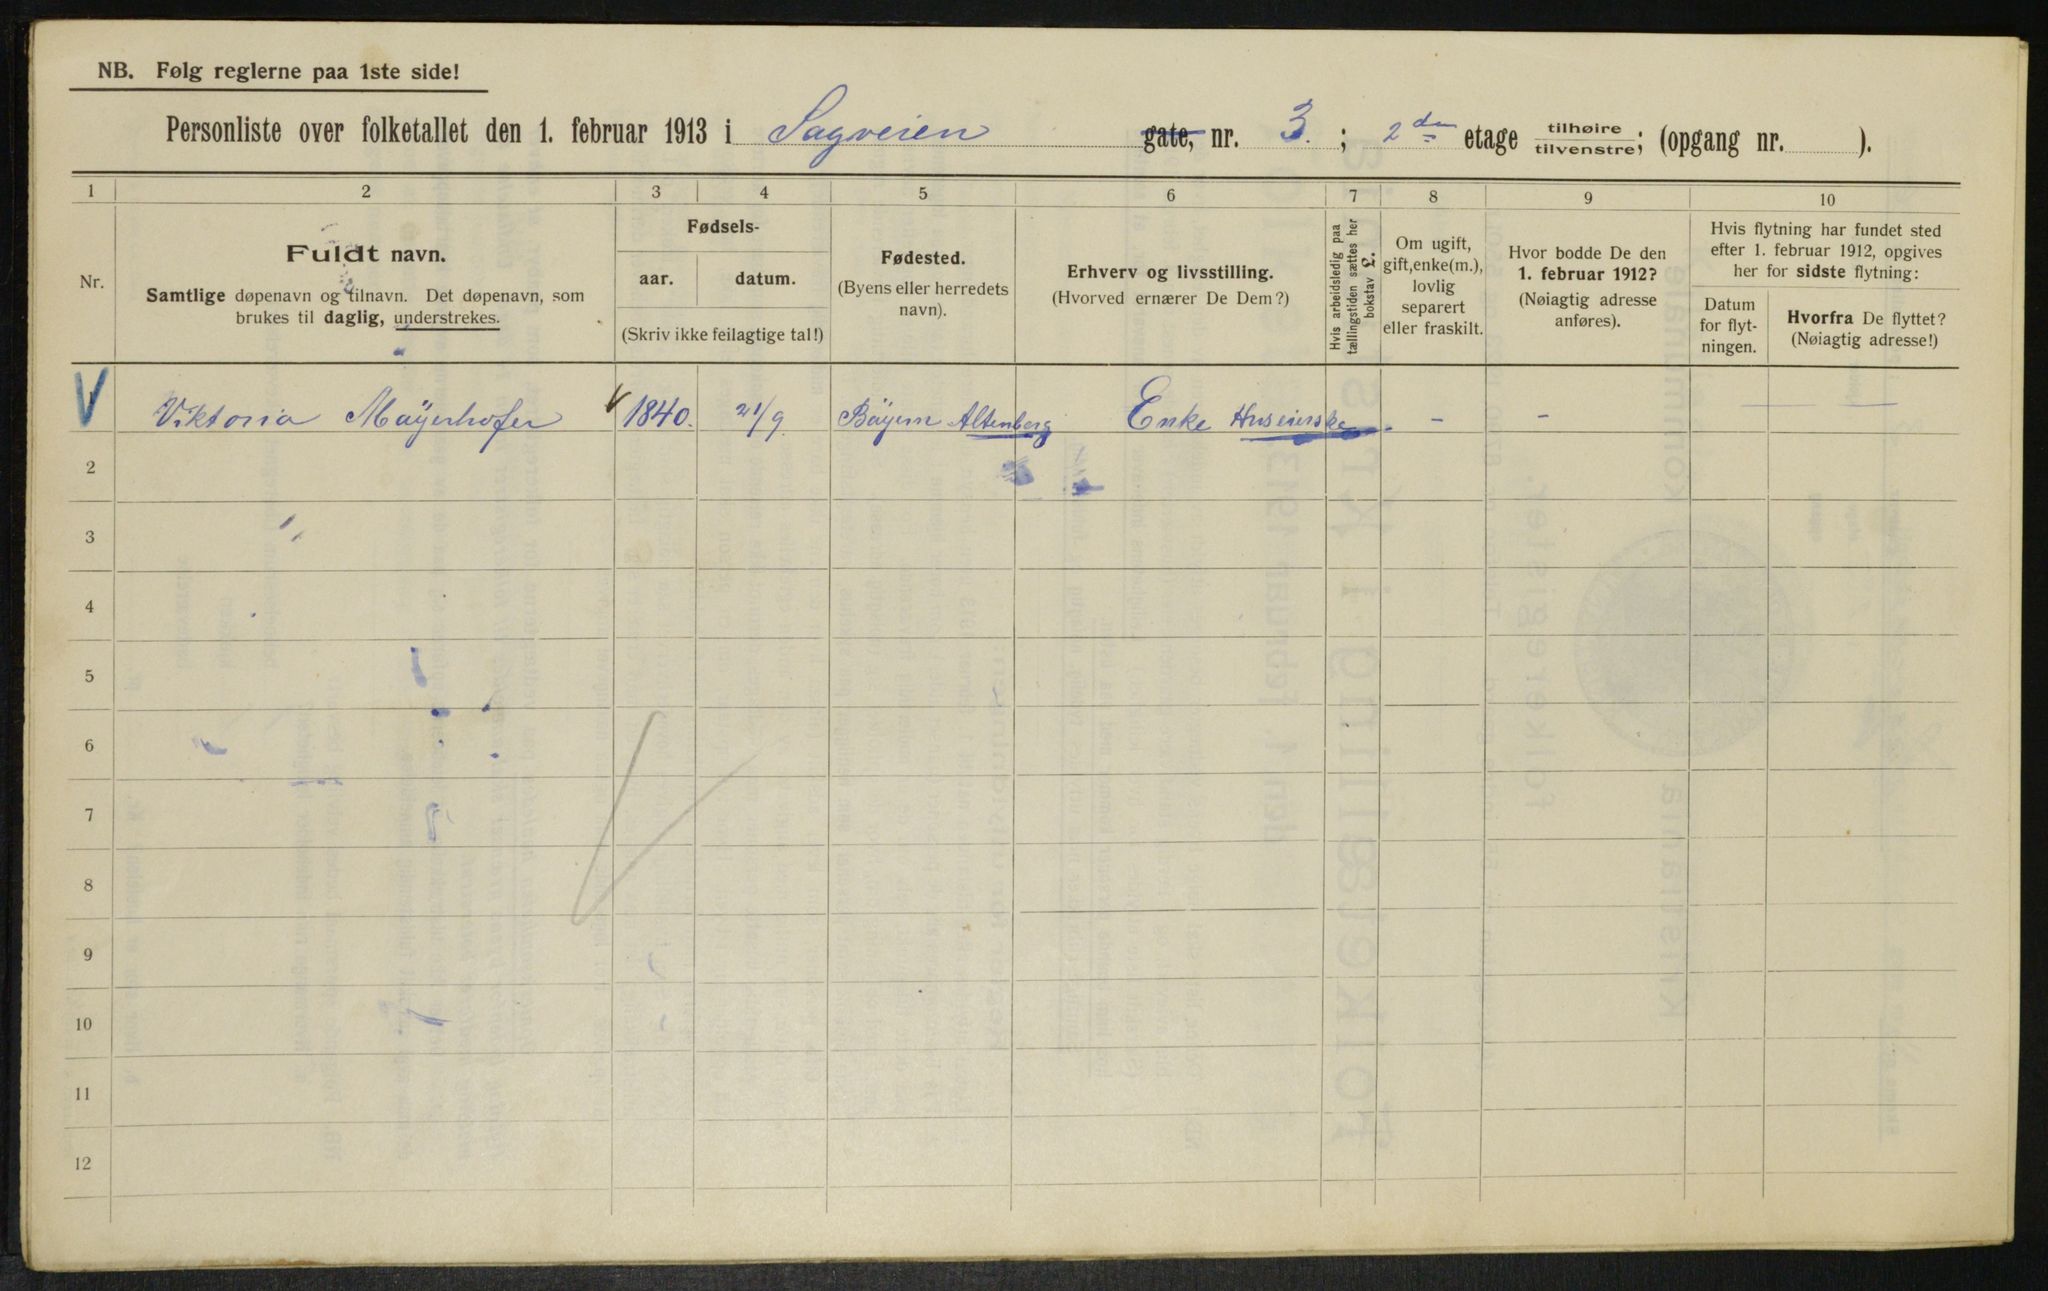 NB. Følg reglerne paa 1ste side!
Personliste over folketallet den 1. februar 1913 i Sagveien gate, nr. 3. ; 2den etage tilhøire tilvenstre; (opgang nr. ).
1 2 3 4 5 6 7 8 9 10
Nr.
Fuldt navn.
Samtlige døpenavn og tilnavn. Det døpenavn, som
brukes til daglig, understrekes.
Fødsels-
aar. datum.
(Skriv ikke feilagtige tal!)
Fødested.
(Byens eller herredets
navn).
Erhverv og livsstilling.
(Hvorved ernærer De Dem?)
Hvis arbeidsledig paa
tællingstiden sættes her
bokstav L.
Om ugift,
gift, enke(m.),
lovlig
separert
eller fraskilt.
Hvor bodde De den
1. februar 1912?
(Nøiagtig adresse
anføres).
Hvis flytning har fundet sted
efter 1. februar 1912, opgives
her for sidste flytning:
Datum
for flyt-
ningen.
Hvorfra De flyttet?
(Nøiagtig adresse!)
1 Viktoria Mayerhofer 1840. 21/9 Bayern Altenberg Enke Huseierske - -
2
3
4
5
6
7
8
9
10
11
12